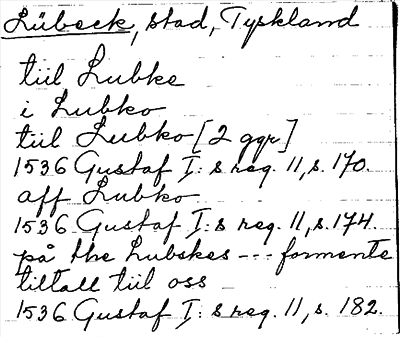 Lübeck, stad, Tyskland
tiil Lubke
i Lubko
tiil Lubko [2 ggr]
1536 Gustaf I:s reg. 11, s. 170.
aff Lubko
1536 Gustaf I:s reg. 11, s. 174.
på the Lubskes --- formente
tiltall tiil oss
1536 Gustaf I:s reg. 11, s. 182.